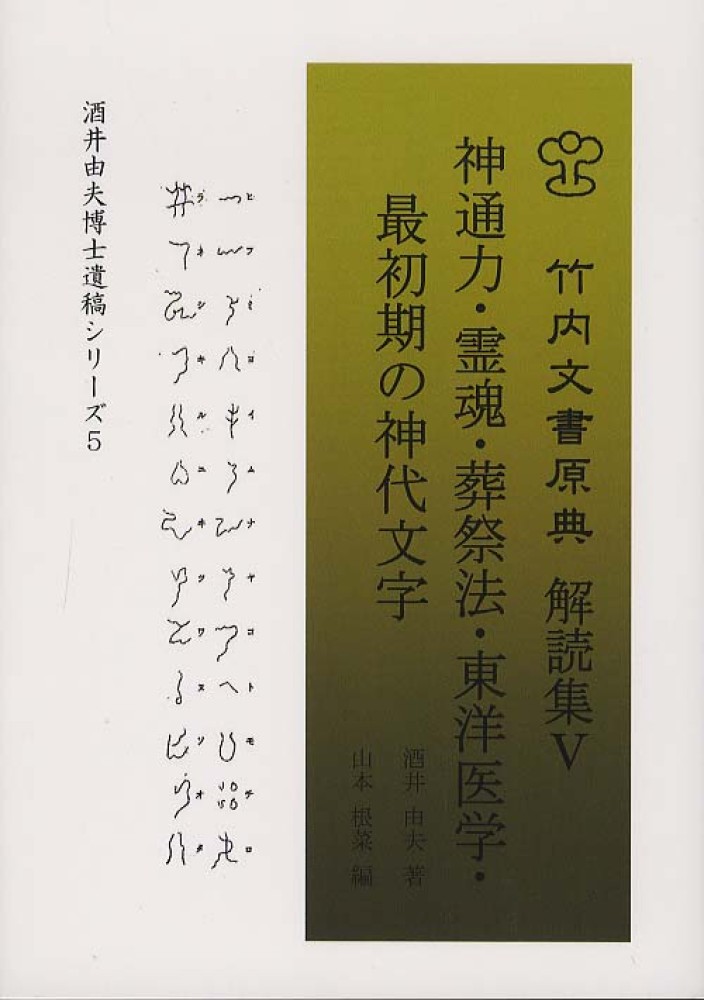 竹内文書原典 解読集Ⅴ
神通力・霊魂・葬祭法・東洋医学・
最初期の神代文字
酒井 由夫 著
山本 根菜 編
ヒ フ ミ ヨ イ ム ナ ヤ コ ト モ チ ロ
ラ ネ シ キ ル ユ ヰ ツ ワ ヌ ソ ヲ タ
酒井由夫博士遺稿シリーズ5